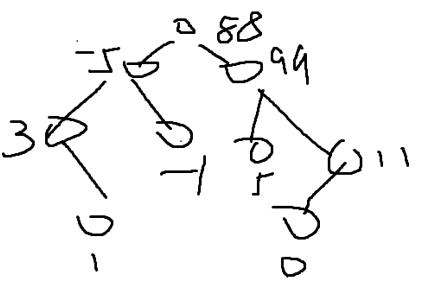 88
-5 99
3 -1 5 11
1 0